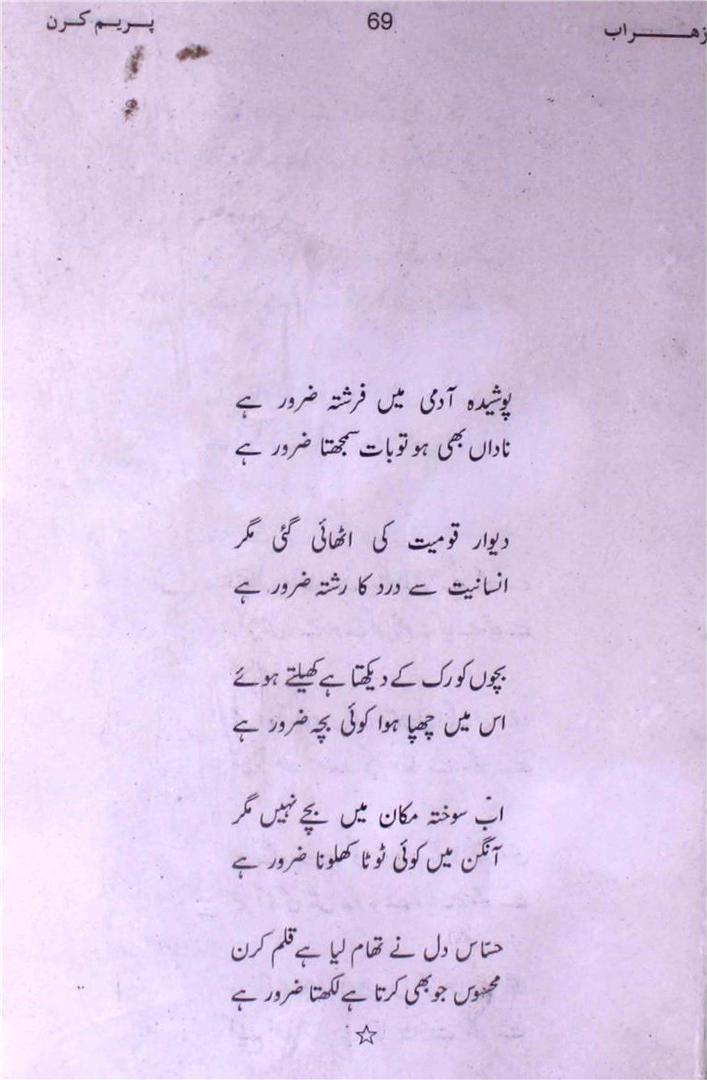 زهراب 69 پریم کرن
پوشیدہ آدمی میں فرشتہ ضرور ہے
ناداں بھی ہو تو بات سمجھتا ضرور ہے
دیوار قومیت کی اٹھائی گئی مگر
انسانیت سے درد کا رشتہ ضرور ہے
بچوں کو رک کے دیکھتا ہے کھیلتے ہوئے
اس میں چھپا ہوا کوئی بچہ ضرور ہے
اب سوختہ مکان میں بچے نہیں مگر
آنگن میں کوئی ٹوٹا کھلونا ضرور ہے
حسّاس دل نے تھام لیا ہے قلم کرن
محسوس جو بھی کرتا ہے لکھتا ضرور ہے